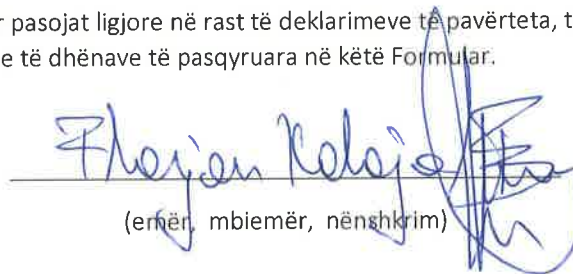 r pasojat ligjore në rast të deklarimeve të pavërteta, t
e të dhënave të pasqyruara në këtë Formular.
Florjan Kalaja
(emër, mbiemër, nënshkrim)